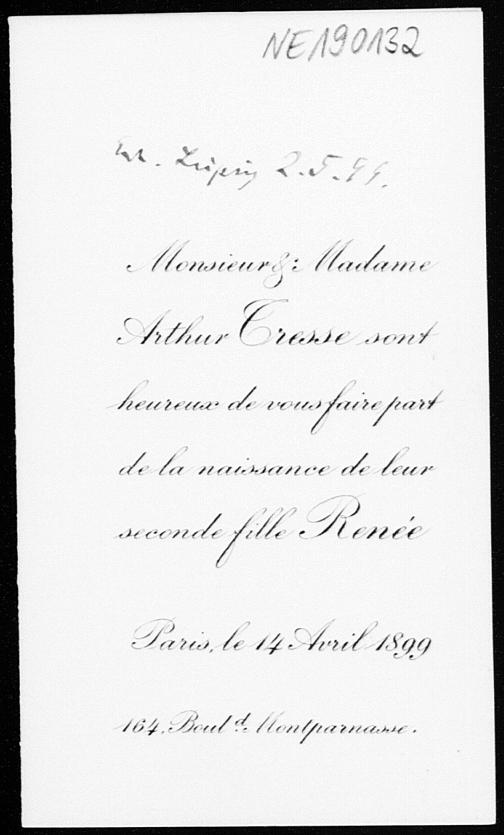 NE190132
Leipzig 2.5.99.
Monsieur & Madame
Arthur Tresse sont
heureux de vous faire part
de la naissance de leur
seconde fille Renée
Paris, le 14 Avril 1899
164, Boul.d Montparnasse.